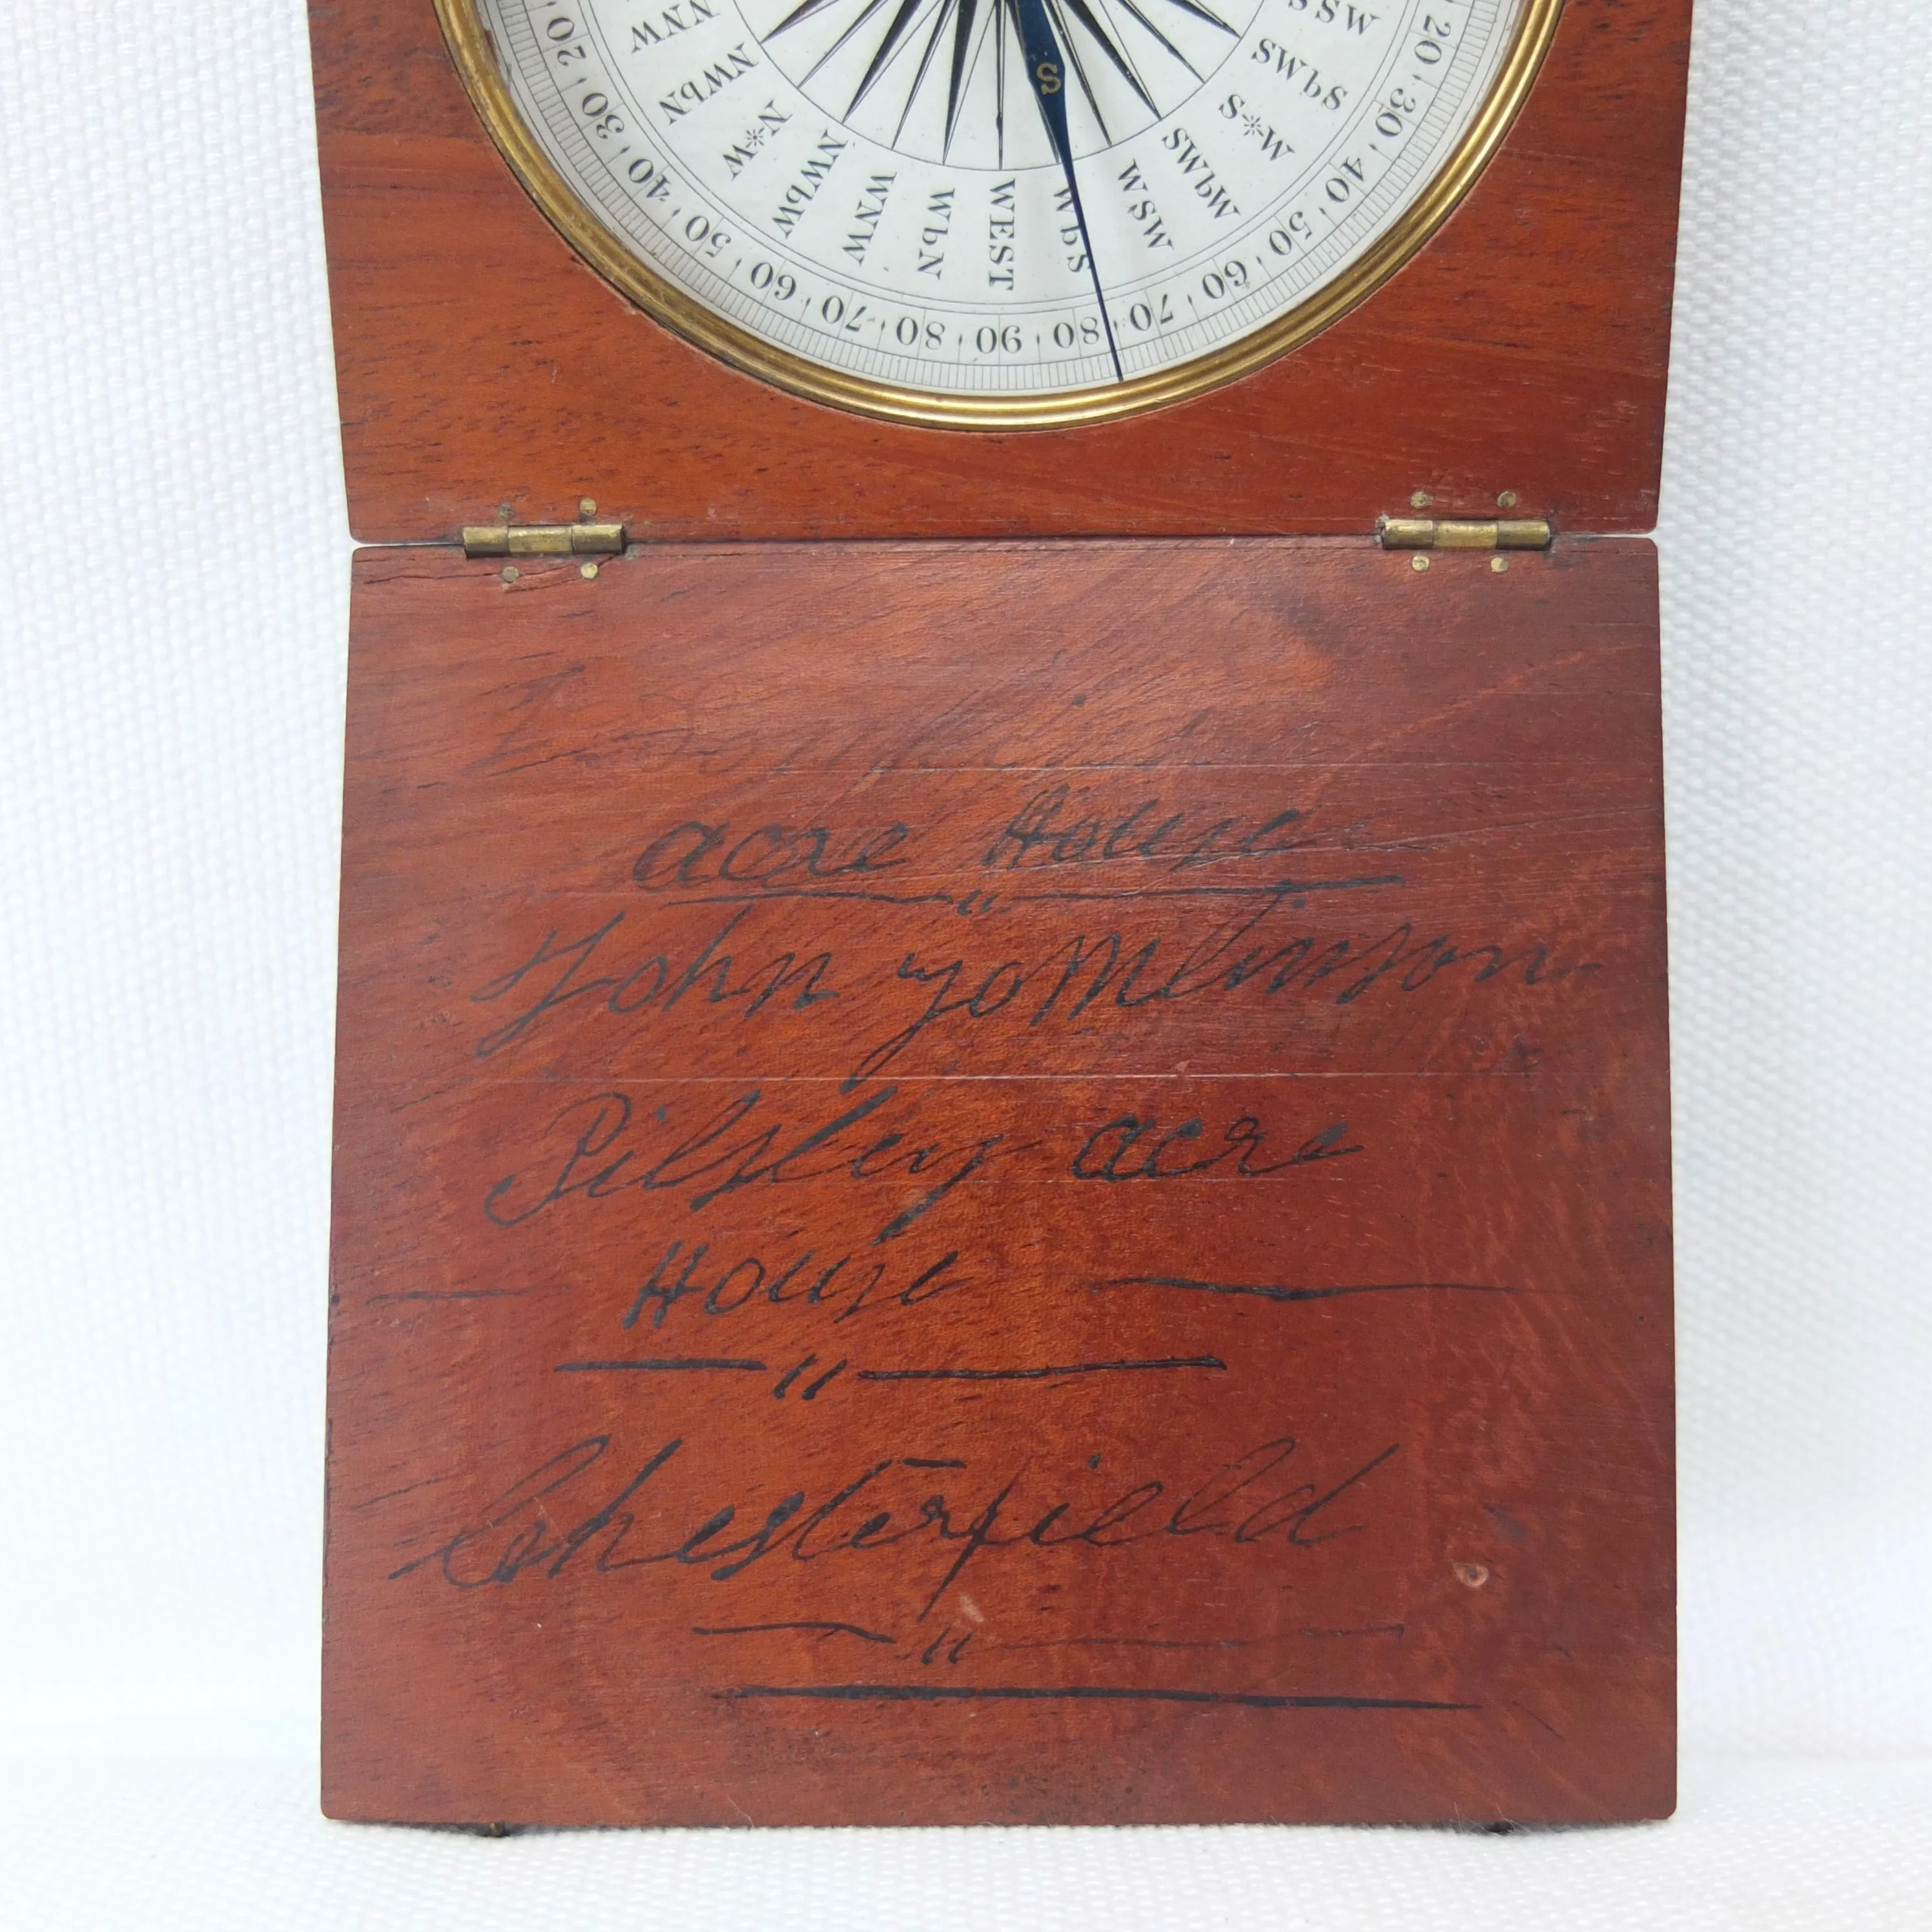 20 30 40 50 60 70 80 90 80 70 60 50 40 30 20
NNW NWbN N*W NWbW WNW WbN WEST WbS WSW SWbW S*W SWbS SSW
S
acre House
"
John Tomlinson
Pilsley acre
House
"
Chesterfield
"